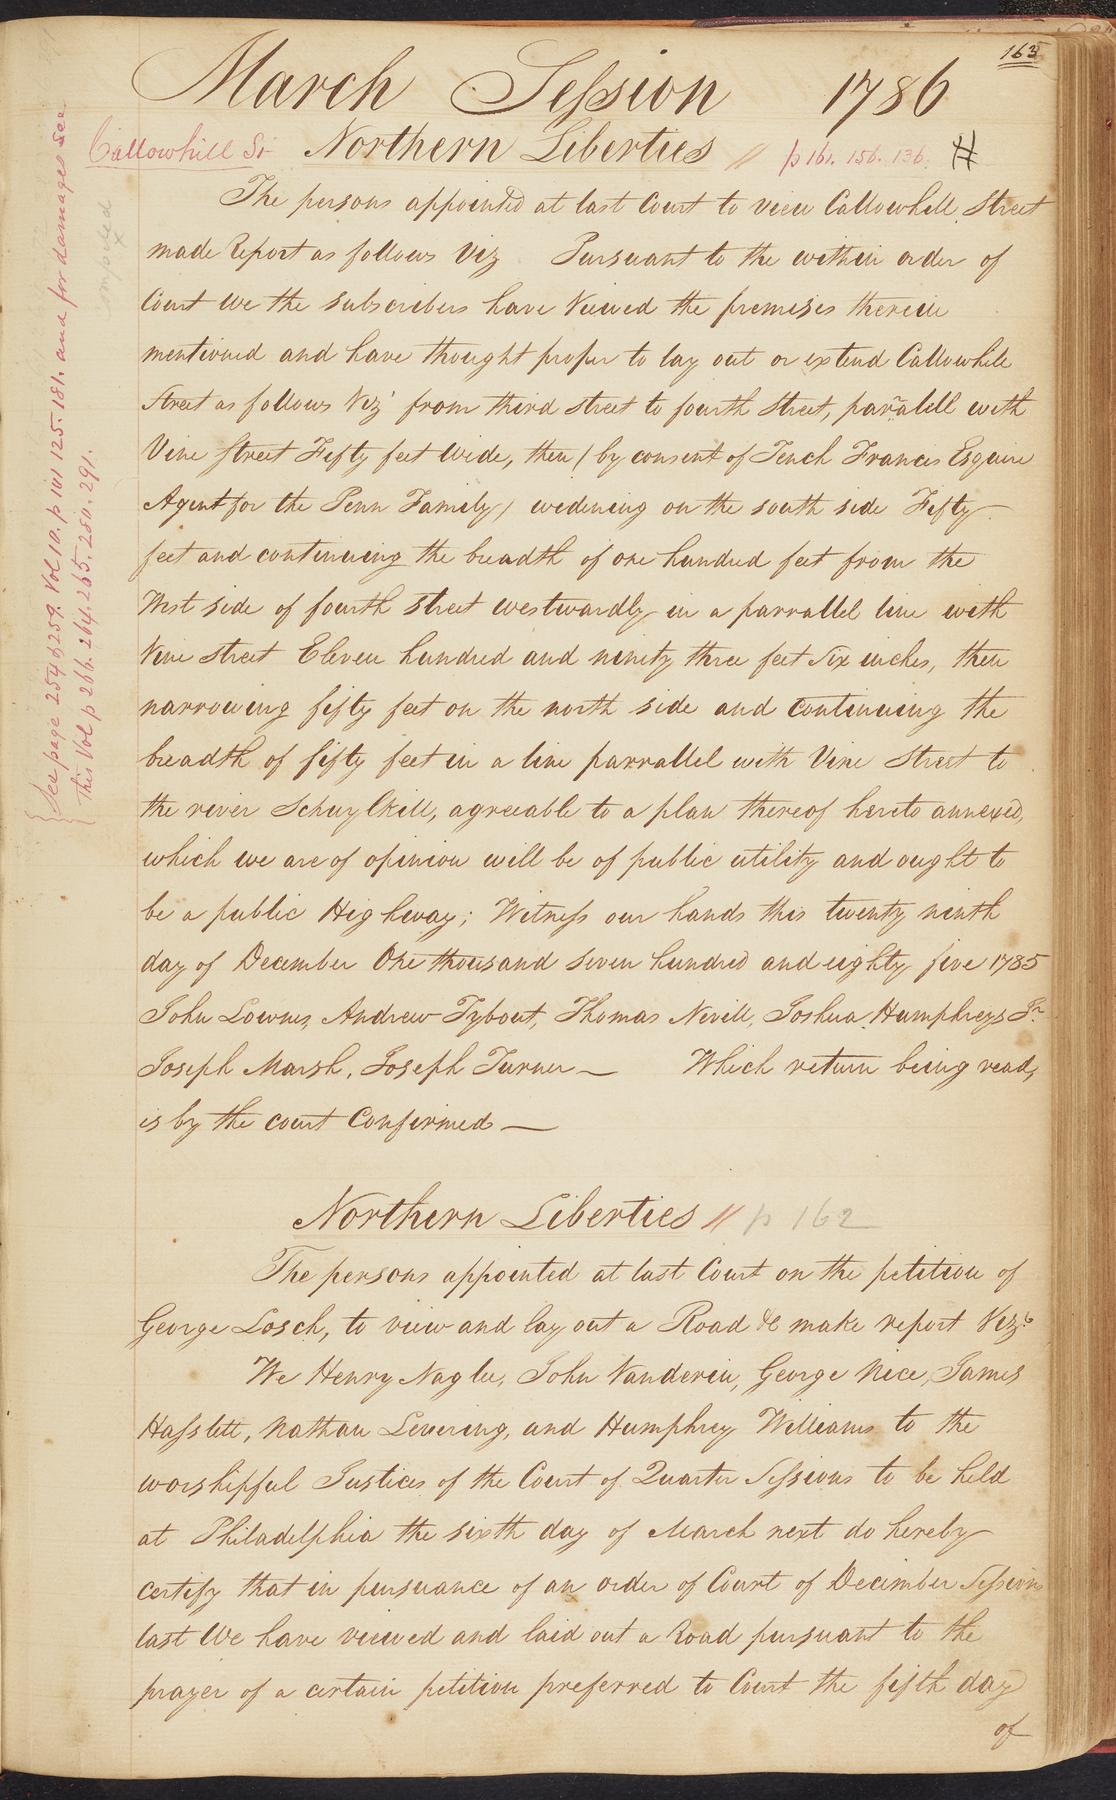 163
March Session 1786
Callowhill St Northern Liberties // p 161. 156. 136. #
The persons appointed at last Court to view Callowhill Street
made Report as follows Viz Pursuant to the within order of
Court We the subscribers have Viewed the premises therein
mentioned and have thought proper to lay out or extend Callowhill
Street as follows Viz' from third street to fourth Street, paralell with
Vine street Fifty feet Wide, then ( by consent of Tench Francis Esquire
Agent for the Penn Family) widening on the south side Fifty
feet and continuing the breadth of one hundred feet from the
West side of fourth Street westwardly in a parrallel line with
Vine street Eleven hundred and ninety three feet Six inches, then
narrowing fifty feet on the north side and continuing the
breadth of fifty feet in a line parrallel with Vine Street to
the river Schuylkill, agreeable to a plan thereof hereto annexed,
which we are of opinion will be of public utility and ought to
be a public Highway; Witness our hands this twenty ninth
day of December One thousand seven hundred and eighty five 1785
John Lownes, Andrew Tybout, Thomas Nevill, Joshua Humphreys Jr
Joseph Marsh, Joseph Turner — Which return being read,
is by the court Confirmed —
Northern Liberties // p 162
The persons appointed at last Court on the petition of
George Losch, to view and lay out a Road &c make report Viz:t
We Henry Naglee, John Vanderin, George Nice, James
Hasslett, Nathan Levering, and Humphrey Williams to the
worshipful Justices of the Court of Quarter Sessions to be held
at Philadelphia the sixth day of March next do hereby
certify that in pursuance of an order of Court of December Sessions
last We have viewed and laid out a Road pursuant to the
prayer of a certain petition preferred to Court the fifth day
of
See page 254 & 259. Vol 10. p 101 125. 181. and for damages see
this Vol p 266. 264. 265. 280. 291.